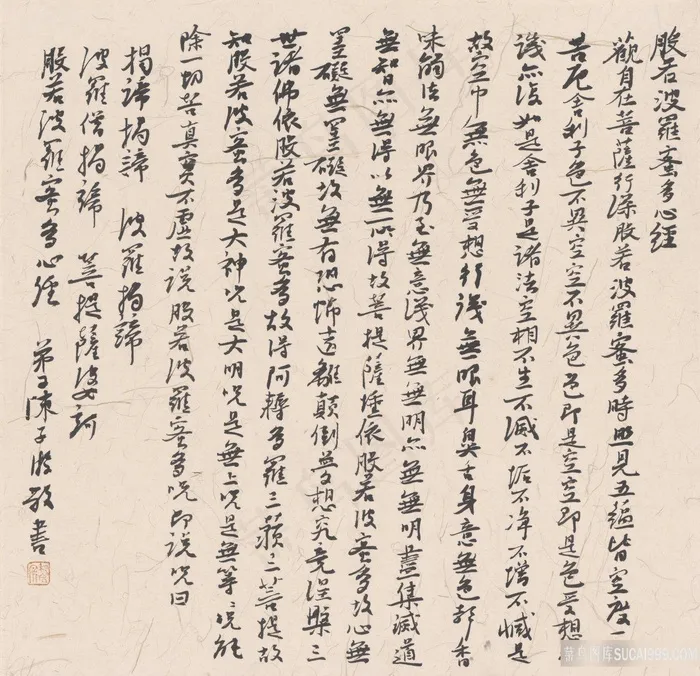 般若波羅蜜多心經
觀自在菩薩行深般若波羅蜜多時照見五蘊皆空度一
苦厄舍利子色不異空空不異色色即是空空即是色受想
識亦復如是舍利子是諸法空相不生不滅不垢不淨不增不減是
故空中無色無受想行識無眼耳鼻舌身意無色聲香
味觸法無眼界乃至無意識界無無明亦無無明盡集滅道
無智亦無得以無所得故菩提薩埵依般若波蜜多故心無
罣礙無罣礙故無有恐怖遠離顛倒夢想究竟涅槃三
世諸佛依般若波羅蜜多故得阿耨多羅三藐三菩提故
知般若波羅蜜多是大神咒是大明咒是無上咒是無等〻咒能
除一切苦真實不虛故說般若波羅蜜多咒即說咒曰
揭諦揭諦 波羅揭諦
波羅僧揭諦 菩提薩婆訶
般若波羅蜜多心經 弟子陳子游敬書
菜鸟图库 SUCAI999.COM